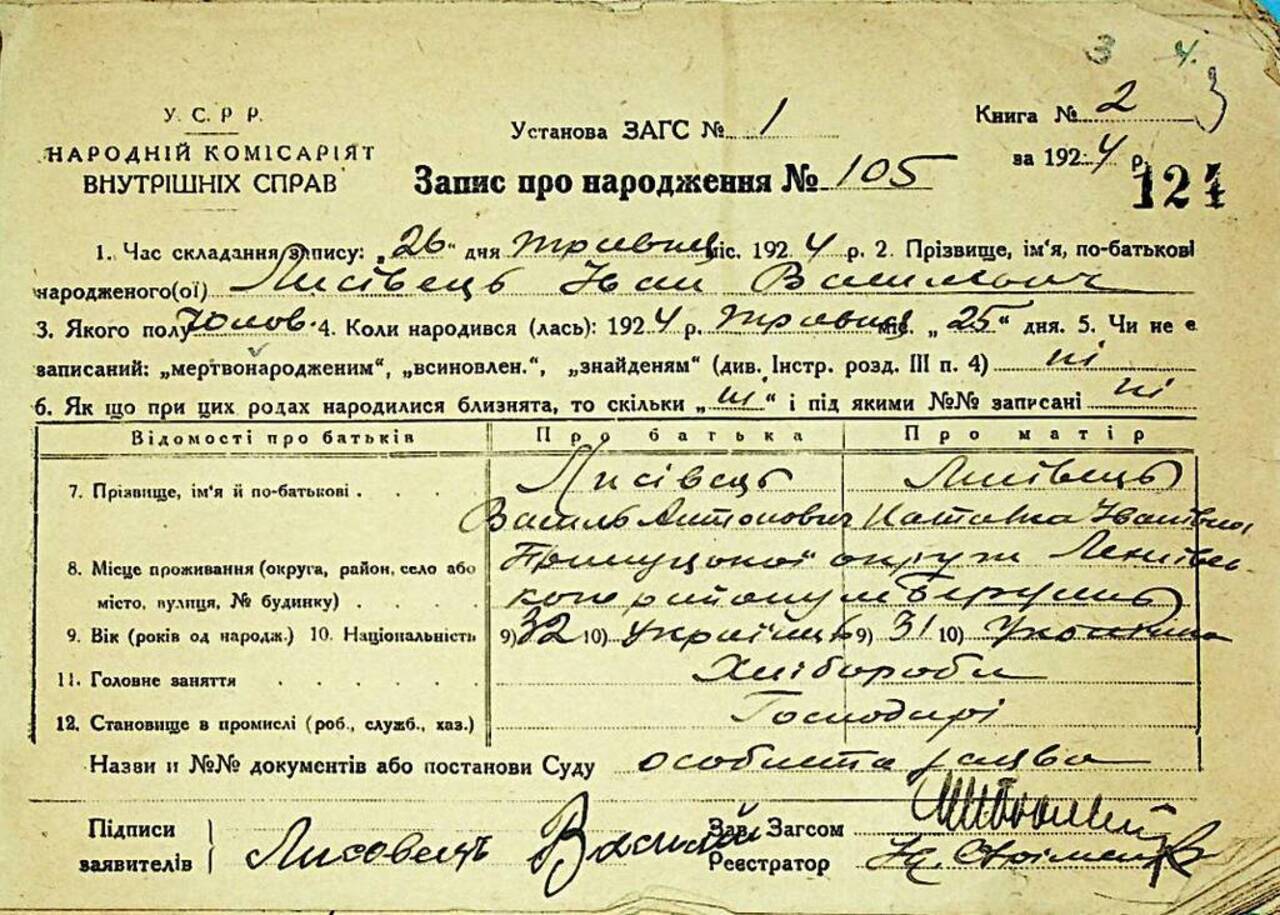 З 4.
У. С. Р Р.
НАРОДНІЙ КОМІСАРІЯТ
ВНУТРІШНІХ СПРАВ
Установа ЗАГС № 1
Книга № 2 3
за 1924 р.
124
Запис про народження № 105
1. Час складання запису: „26“ дня травня міс. 1924 р. 2. Прізвище, ім'я, по-батькові
народженого(ої) Лисівець Іван Васильович
3. Якого полу чолов. 4. Коли народився (лась): 1924 р. травня міс. „25“ дня. 5. Чи не є
записаний: „мертвонародженим“, „всиновлен.“, „знайденям“ (див. Інстр. розд. III п. 4) ні
6. Як що при цих родах народилися близнята, то скільки „ні“ і під якими №№ записані ні
Відомості про батьків Про батька Про матір
7. Прізвище, ім'я й по-батькові . . . . Лисівець Лисівець
Василь Антонович Іванівна
8. Місце проживання (округа, район, село або Прилуцької округи
місто, вулиця, № будинку) . . . . кого району
9. Вік (років од народж.) 10. Національність 9) 32 10) Українець 9) 31 10) Українка
11. Головне заняття . . . . . . Хлібороби
12. Становище в промислі (роб., служб., хаз.) Господарі
Назви и №№ документів або постанови Суду особиста заява
Підписи
заявителів Лисовець Василий
Зав. Загсом
Реєстратор